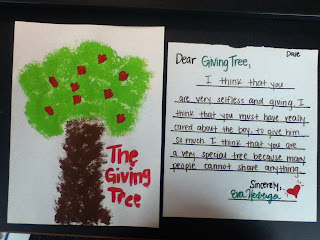 The
Giving
Tree
Date
Dear Giving Tree,
I think that you
are very selfless and giving. I
think that you must have really
cared about the boy, to give him
so much. I think that you are
a very special tree because many
people cannot share anything.
Sincerely,
Eva